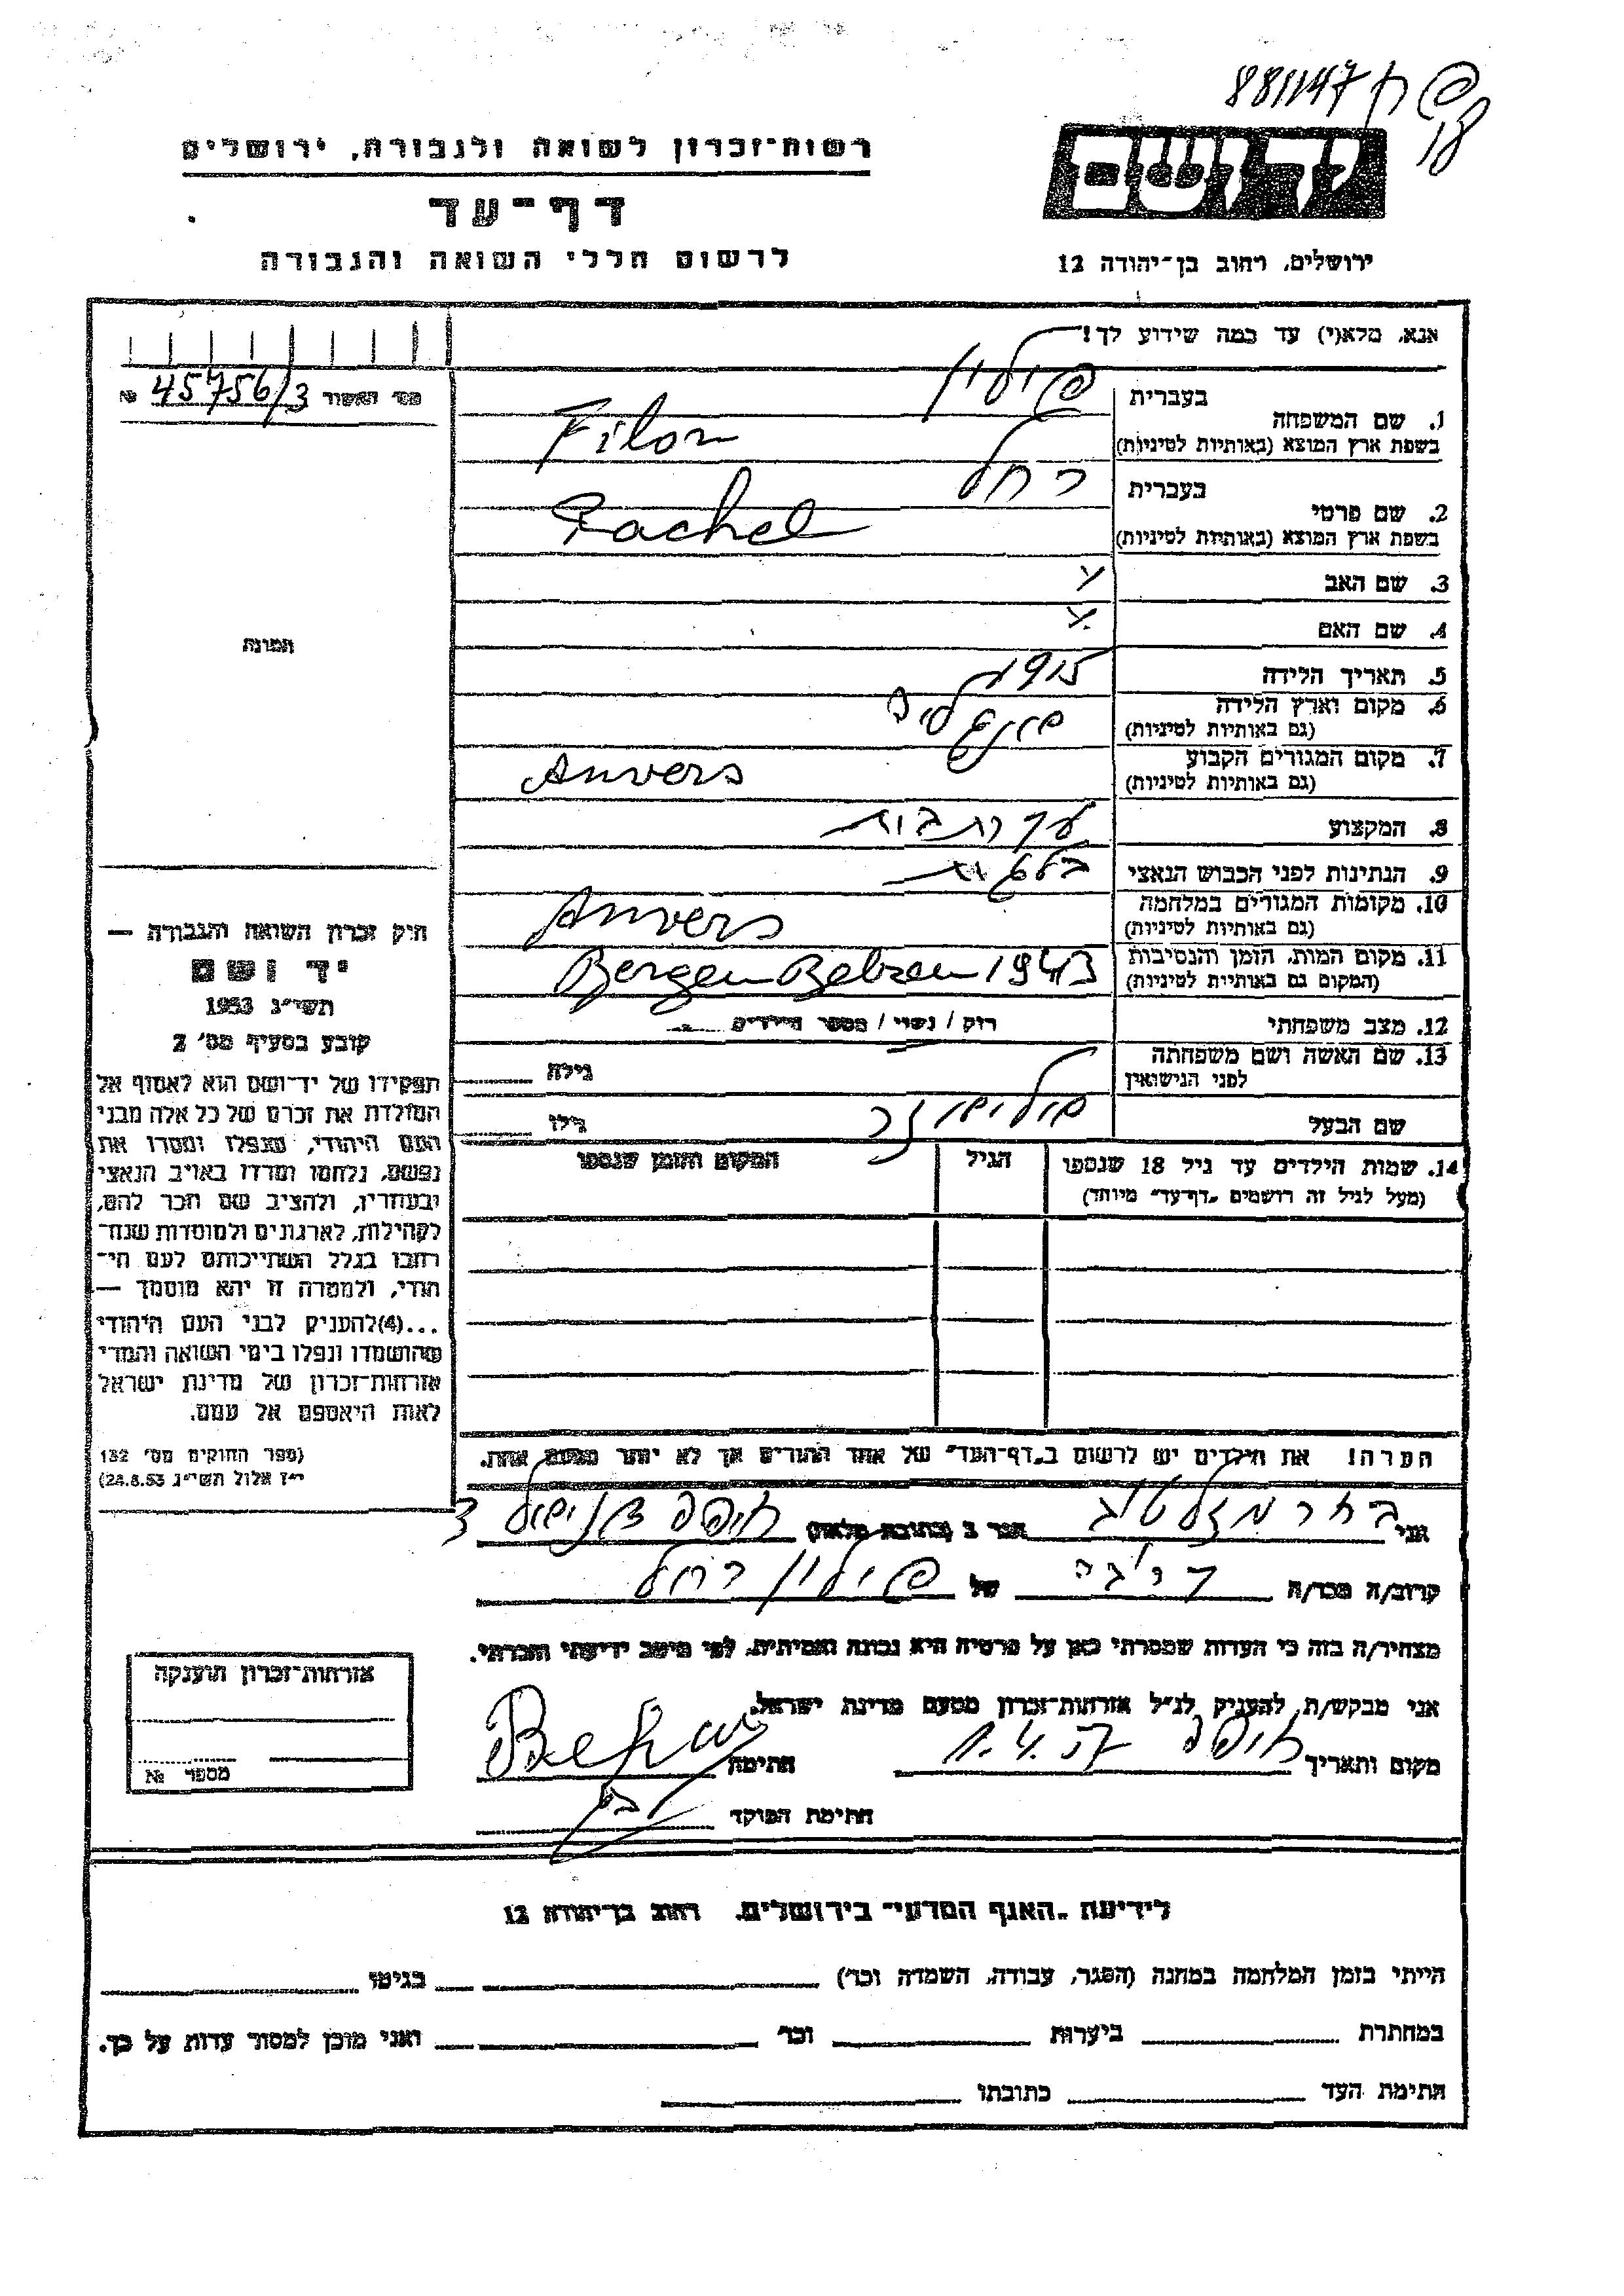 881147
רשות־זכרון לשואה ולגבורה, ירושלים
דף־עד
לרשום חללי השואה והגבורה
יד ושם
ירושלים, רחוב בן־יהודה 12
אנא, מלא(י) עד כמה שידוע לך!
מס׳ האשור 45756/3 №
תמונה
1. שם המשפחה
בעברית פילון
בשפת ארץ המוצא (באותיות לטיניות) Filon
2. שם פרטי
בעברית רחל
בשפת ארץ המוצא (באותיות לטיניות) Rachel
3. שם האב
4. שם האם
5. תאריך הלידה 1915
6. מקום וארץ הלידה
(גם באותיות לטיניות)
7. מקום המגורים הקבוע Anvers
(גם באותיות לטיניות)
8. המקצוע עקרת בית
9. הנתינות לפני הכבוש הנאצי
10. מקומות המגורים במלחמה Anvers
(גם באותיות לטיניות)
11. מקום המות, הזמן והנסיבות Bergen Belzen 1943
(המקום גם באותיות לטיניות)
12. מצב משפחתי רוק / נשוי / מספר הילדים
13. שם האשה ושם משפחתה גילה
לפני הנישואין
שם הבעל גילו
14. שמות הילדים עד גיל 18 שנספו הגיל המקום והזמן שנספו
(מעל לגיל זה רושמים „דף־עד״ מיוחד)
הערה! את הילדים יש לרשום ב„דף־העד״ של אחד ההורים אך לא יותר מפעם אחת.
חוק זכרון השואה והגבורה —
יד ושם
תשי״ג 1953
קובע בסעיף מס׳ 2
תפקידו של יד־ושם הוא לאסוף אל
המולדת את זכרם של כל אלה מבני
העם היהודי, שנפלו ומסרו את
נפשם, נלחמו ומרדו באויב הנאצי
ובעוזריו, ולהציב שם וזכר להם,
לקהילות, לארגונים ולמוסדות שנח־
רבו בגלל השתייכותם לעם הי־
הודי, ולמטרה זו יהא מוסמך —
...(4)להעניק לבני העם היהודי
שהושמדו ונפלו בימי השואה והמרי
אזרחות־זכרון של מדינת ישראל
לאות היאספם אל עמם.
(ספר החוקים מס׳ 132
י״ז אלול תשי״ג 28.8.53)
אני בחר מזל טוב הגר ב (כתובת מלאה) חיפה
קרוב/ה מכר/ה של פילון רחל
מצהיר/ה בזה כי העדות שמסרתי כאן על פרטיה היא נכונה ואמיתית, לפי מיטב ידיעתי והכרתי.
אני מבקש/ת להעניק לנ״ל אזרחות־זכרון מטעם מדינת ישראל.
מקום ותאריך חיפה חתימה Behar
חתימת הפוקד
אזרחות־זכרון הוענקה
מספר №
לידיעת „האגף המדעי״ בירושלים, רחוב בן־יהודה 12
הייתי בזמן המלחמה במחנה (הסגר, עבודה, השמדה וכד׳) בגיטו
במחתרת ביערות וכד׳ ואני מוכן למסור עדות על כך.
חתימת העד כתובתו